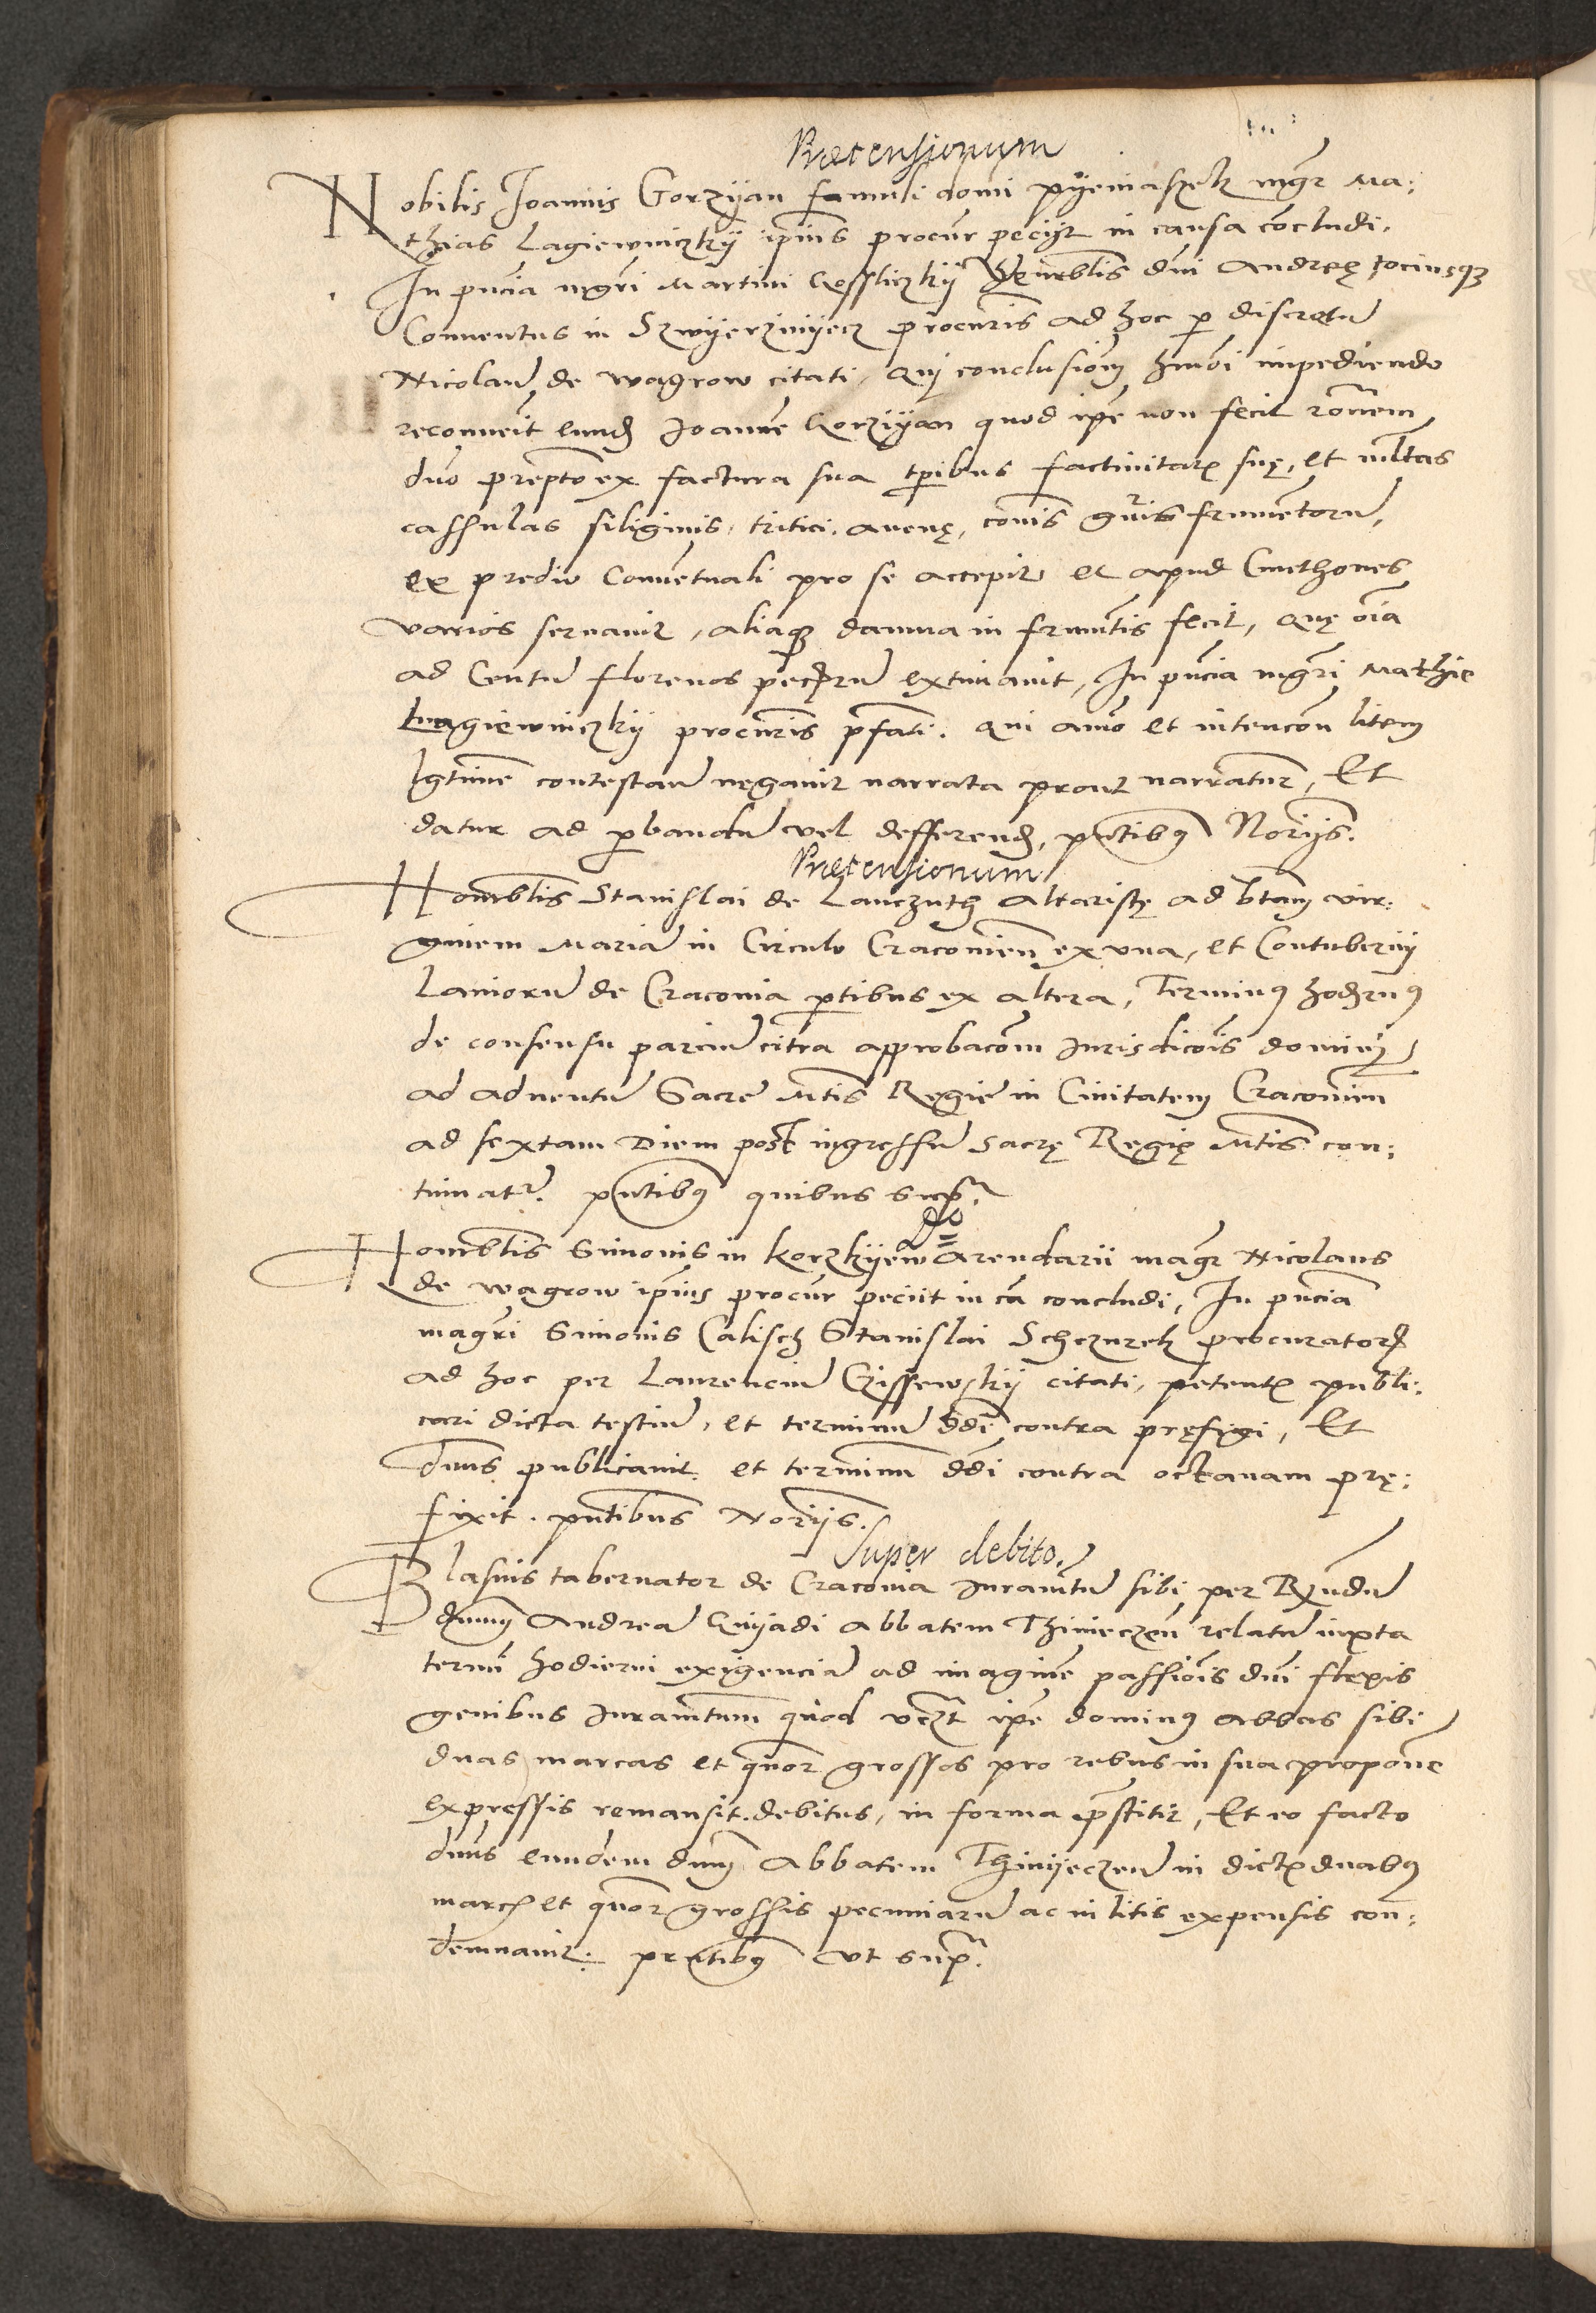 Prætensionum
Nobilis Joannis Gorzyan famuli domi pyeniaszek mgr Ma:
thias Lagiewniczky ipius procur pecyt in causa concludi,
In pncia mgri Martini Coffliczky Venerblis dni Andreę tociusq3
Conventus in Szwyerzinyecz procuris ad hoc p discretu
Nicolau de wagrow citati, Qui conclusiom hmoi impediendo
reconveit eund Joanne Gorzyan quod ipe non fecit ronem
dno prepto ex factura sua tpibus factivitatis suę, et multas
cassulas siliginis, tritici, avenę, omis gnris frumetoru,
ex predio Conventuali pro se accepit et apud Cmethones
varios servavit, aliaq3 damna in frumtis fecit, Quę oia
ad Centu florenos pecuru extimavit, In pncia mgri Mathie
Lagiewniczky procuris pfati. Qui animo et intencon litem
lgtime contestan negavit narrata prout narrantur, Et
datur ad pbandu vel defferend, pntibus Norys.
Prætensionum
Honorblis Stanislai de Lanczuth Altaristę ad btam vir:
ginem Maria in Circulo Cracovien ex una, et Contuberny
Lanioru de Cracovia ptibus ex altera, Terminus hodrnus
de consensu parciu citra approbacom Jurisdicois dominy
ad adventu Sacre Mtis Regie in Civitatem Cracovien
ad sextam Diem post ingressu Sacrę Regię Mtis con:
tinuatr. pntibus quibus supra
Honorblis Simonis in Korzkyew Arendarii magr Nicolaus
de wagrow ipius procur peciit in ca concludi, In pncia
magri Simonis Calisch Stanislai Schczurek procurator
ad hoc per Laurenciu Gissewsky citati, petentis publi:
cari dicta testiu, et terminu ddi contra pręfigi, Et
dnus publicavit et terminum ddi contra octavam prę:
fixit. pntibus Norys.
Super debito.
Blasius tabernator de Cracovia Juramtu sibi per Rvndu
dnum Andrea Gnyadi Abbatem Thinieczen relatu iuxta
termi hodierni exigencia ad imagine passiois dni flexis
genibus Juramtum quod videlt ipe dominus Abbas sibi
duas marcas et quor grossos pro rebus in sua propone
expressis remansit debitus, in forma pstitit, Et eo facto
dnus eundem dnum Abbatem Thinyeczen in dictis duabus
marcis et quor grossis pecuniaru ac in litis expensis con:
demnavit. pntibus ut supra.